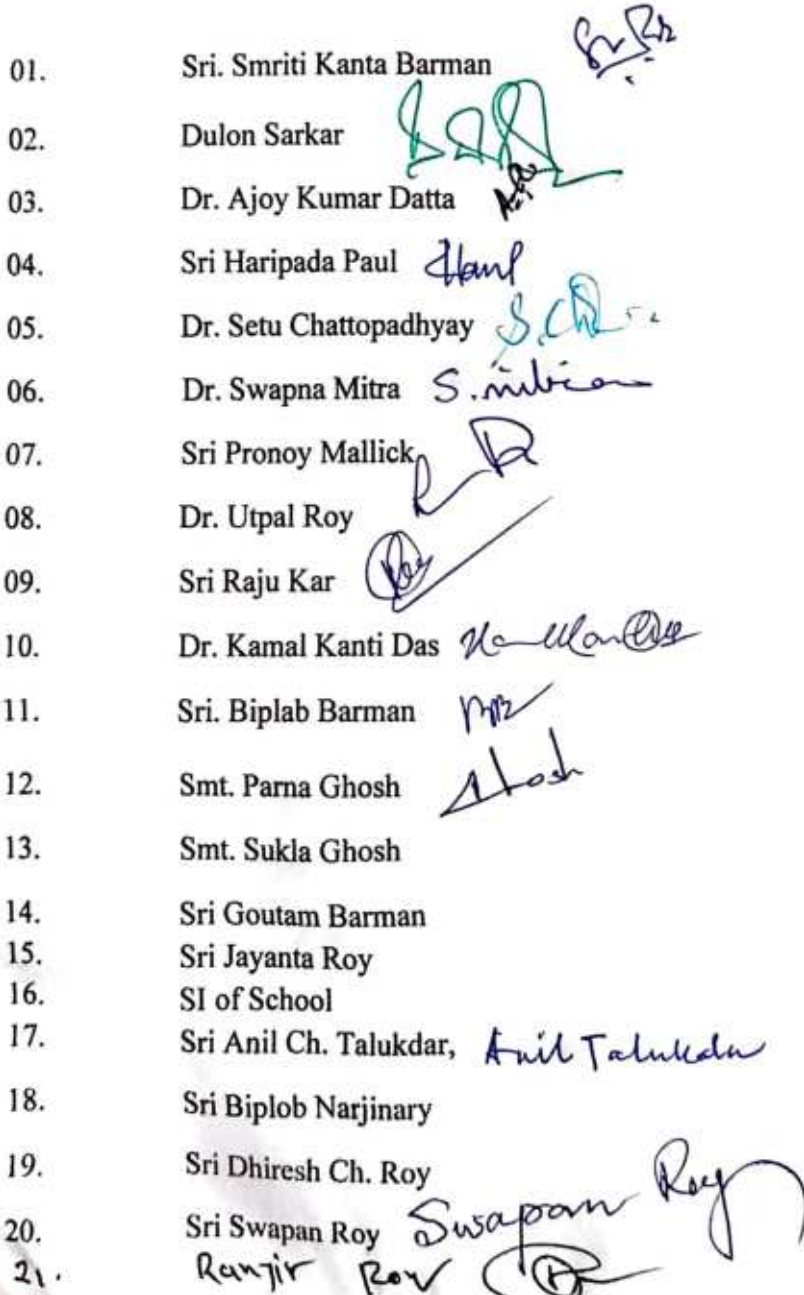 01. Sri. Smriti Kanta Barman
02. Dulon Sarkar
03. Dr. Ajoy Kumar Datta
04. Sri Haripada Paul
05. Dr. Setu Chattopadhyay
06. Dr. Swapna Mitra S. Mitra
07. Sri Pronoy Mallick
08. Dr. Utpal Roy
09. Sri Raju Kar
10. Dr. Kamal Kanti Das
11. Sri. Biplab Barman
12. Smt. Parna Ghosh
13. Smt. Sukla Ghosh
14. Sri Goutam Barman
15. Sri Jayanta Roy
16. SI of School
17. Sri Anil Ch. Talukdar, Anil Talukdar
18. Sri Biplob Narjinary
19. Sri Dhiresh Ch. Roy
20. Sri Swapan Roy Swapan Roy
21. Ranjit Roy